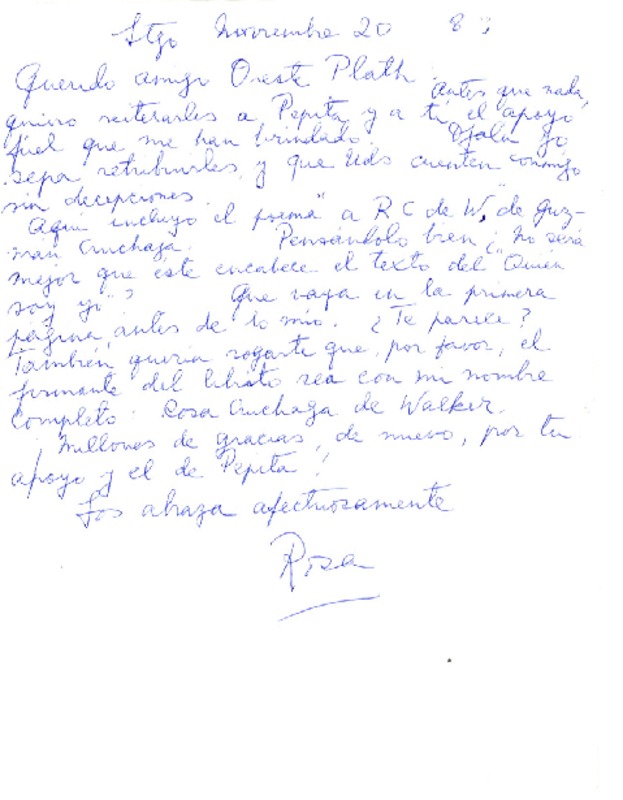 Stgo Noviembre 20 8
Querido amigo Oreste Plath:
Antes que nada,
quiero reiterarles a Pepita y a ti el apoyo
fiel que me han brindado. Ojalá yo
sepa retribuirles, y que Uds cuenten conmigo
sin decepciones.
Aquí incluyo el poema "a R C de W," de Guz-
mán Cruchaga. Pensándolo bien ¿no será
mejor que este encabece el texto del "Quien
soy yo"? Que vaya en la primera
página, antes de lo mío. ¿Te parece?
También quería rogarte que, por favor, el
firmante del librito sea con mi nombre
completo: Rosa Cruchaga de Walker.
¡Millones de gracias, de nuevo, por tu
apoyo y el de Pepita!
Los abraza afectuosamente
Rosa